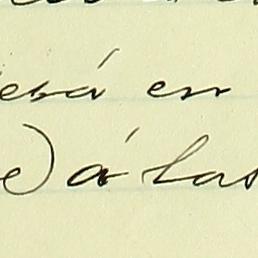 esá en
e) á las